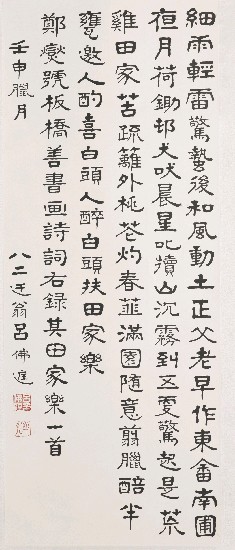 細雨輕雷驚蟄後和風動土正父老早作東畬南圃
夜月荷鋤邨犬吠晨星叱犢山沉霧到五更驚起是荒
雞田家苦疏籬外桃花灼春韭滿園隨意剪臘醅半
甕邀人酌喜白頭人醉白頭扶田家樂
鄭燮號板橋善書画詩詞右錄其田家樂一首
壬申臘月
八二迂翁呂佛庭